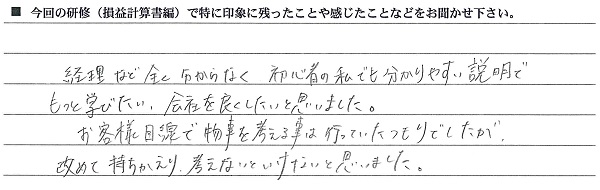 ■ 今回の研修（損益計算書編）で特に印象に残ったことや感じたことなどをお聞かせ下さい。
経理など全く分からなく 初心者の私でも分かりやすい説明で
もっと学びたい、会社を良くしたいと思いました。
お客様目線で物事を考える事は行っていたつもりでしたが、
改めて持ちかえり、考えないといけないと思いました。